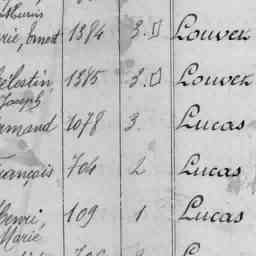 Ernest 1384 3. Louvek
Célestin 1385 3. Louvek
Joseph
Armand 1078 3. Lucas
François 704 2 Lucas
Henri, 109 1 Lucas
Marie